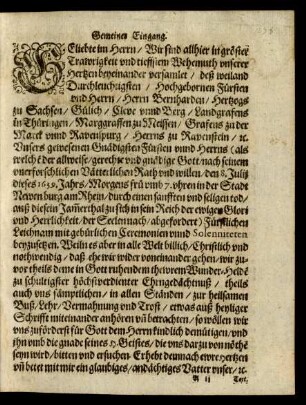 Gemeiner Eingang.
GEliebte im Herrn / Wir sind allhier in gröster
Trawrigkeit vnd tieffstem Wehemuth vnserer
Hertzen beyeinander versamlet / deß weiland
Durchleuchtigsten / Hochgebornen Fürsten
vnd Herrn / Herrn Bernharden / Hertzogs
zu Sachsen / Gülich / Cleve vnnd Berg / Landgrafens
in Thüringen / Marggraffen zu Meissen / Grafens zu der
Marck vnnd Ravenspurg / Herrns zu Ravenstein / ꝛc.
Vnsers gewesenen Gnädigsten Fürsten vnnd Herrns (als
welchẽ der allweise / gerechte vnd gnädige Gott / nach seinem
vnerforschlichen Vätterlichen Rath vnd willen / den 8. Julij
dieses 1639. Jahrs / Morgens frü vmb 7. vhren in der Stadt
Newenburg am Rhein / durch einen sanfften vnd seligen tod /
auß diesem Jam̃erthal zu sich in sein Reich der ewigen Glori
vnd Herrlichkeit / der Seelen nach / abgefordert) Fürstlichen
Leichnam mit gebürlichen Ceremonien vnnd Solenniteten
beyzusetzen. Weiln es aber in alle Welt billich / Christlich vnd
nothwendig / daß ehe wir wider voneinander gehen / wir zu-
vor theils deme in Gott ruhendem thewrem Wunder-Held̃
zu schuldigster höchstverdienter Ehrngedächtnuß / theils
auch vns sämptlichen / in allen Ständen / zur heilsamen
Buß / Lehr / Vermahnung vnd Trost / etwas auß heyliger
Schrifft miteinander anhören vñ betrachten / so wöllen wir
vns zuförderst für Gott dem Herrn kindlich demütigen / vnd
ihn vmb die gnade seines H. Geistes / die vns darzu von nöthẽ
seyn wird / bitten vnd ersuchen: Erhebt demnach ewre Hertzen
vñ betet mit mir ein glaubiges / andächtiges Vatter vnser / ꝛc.
A ij Text.